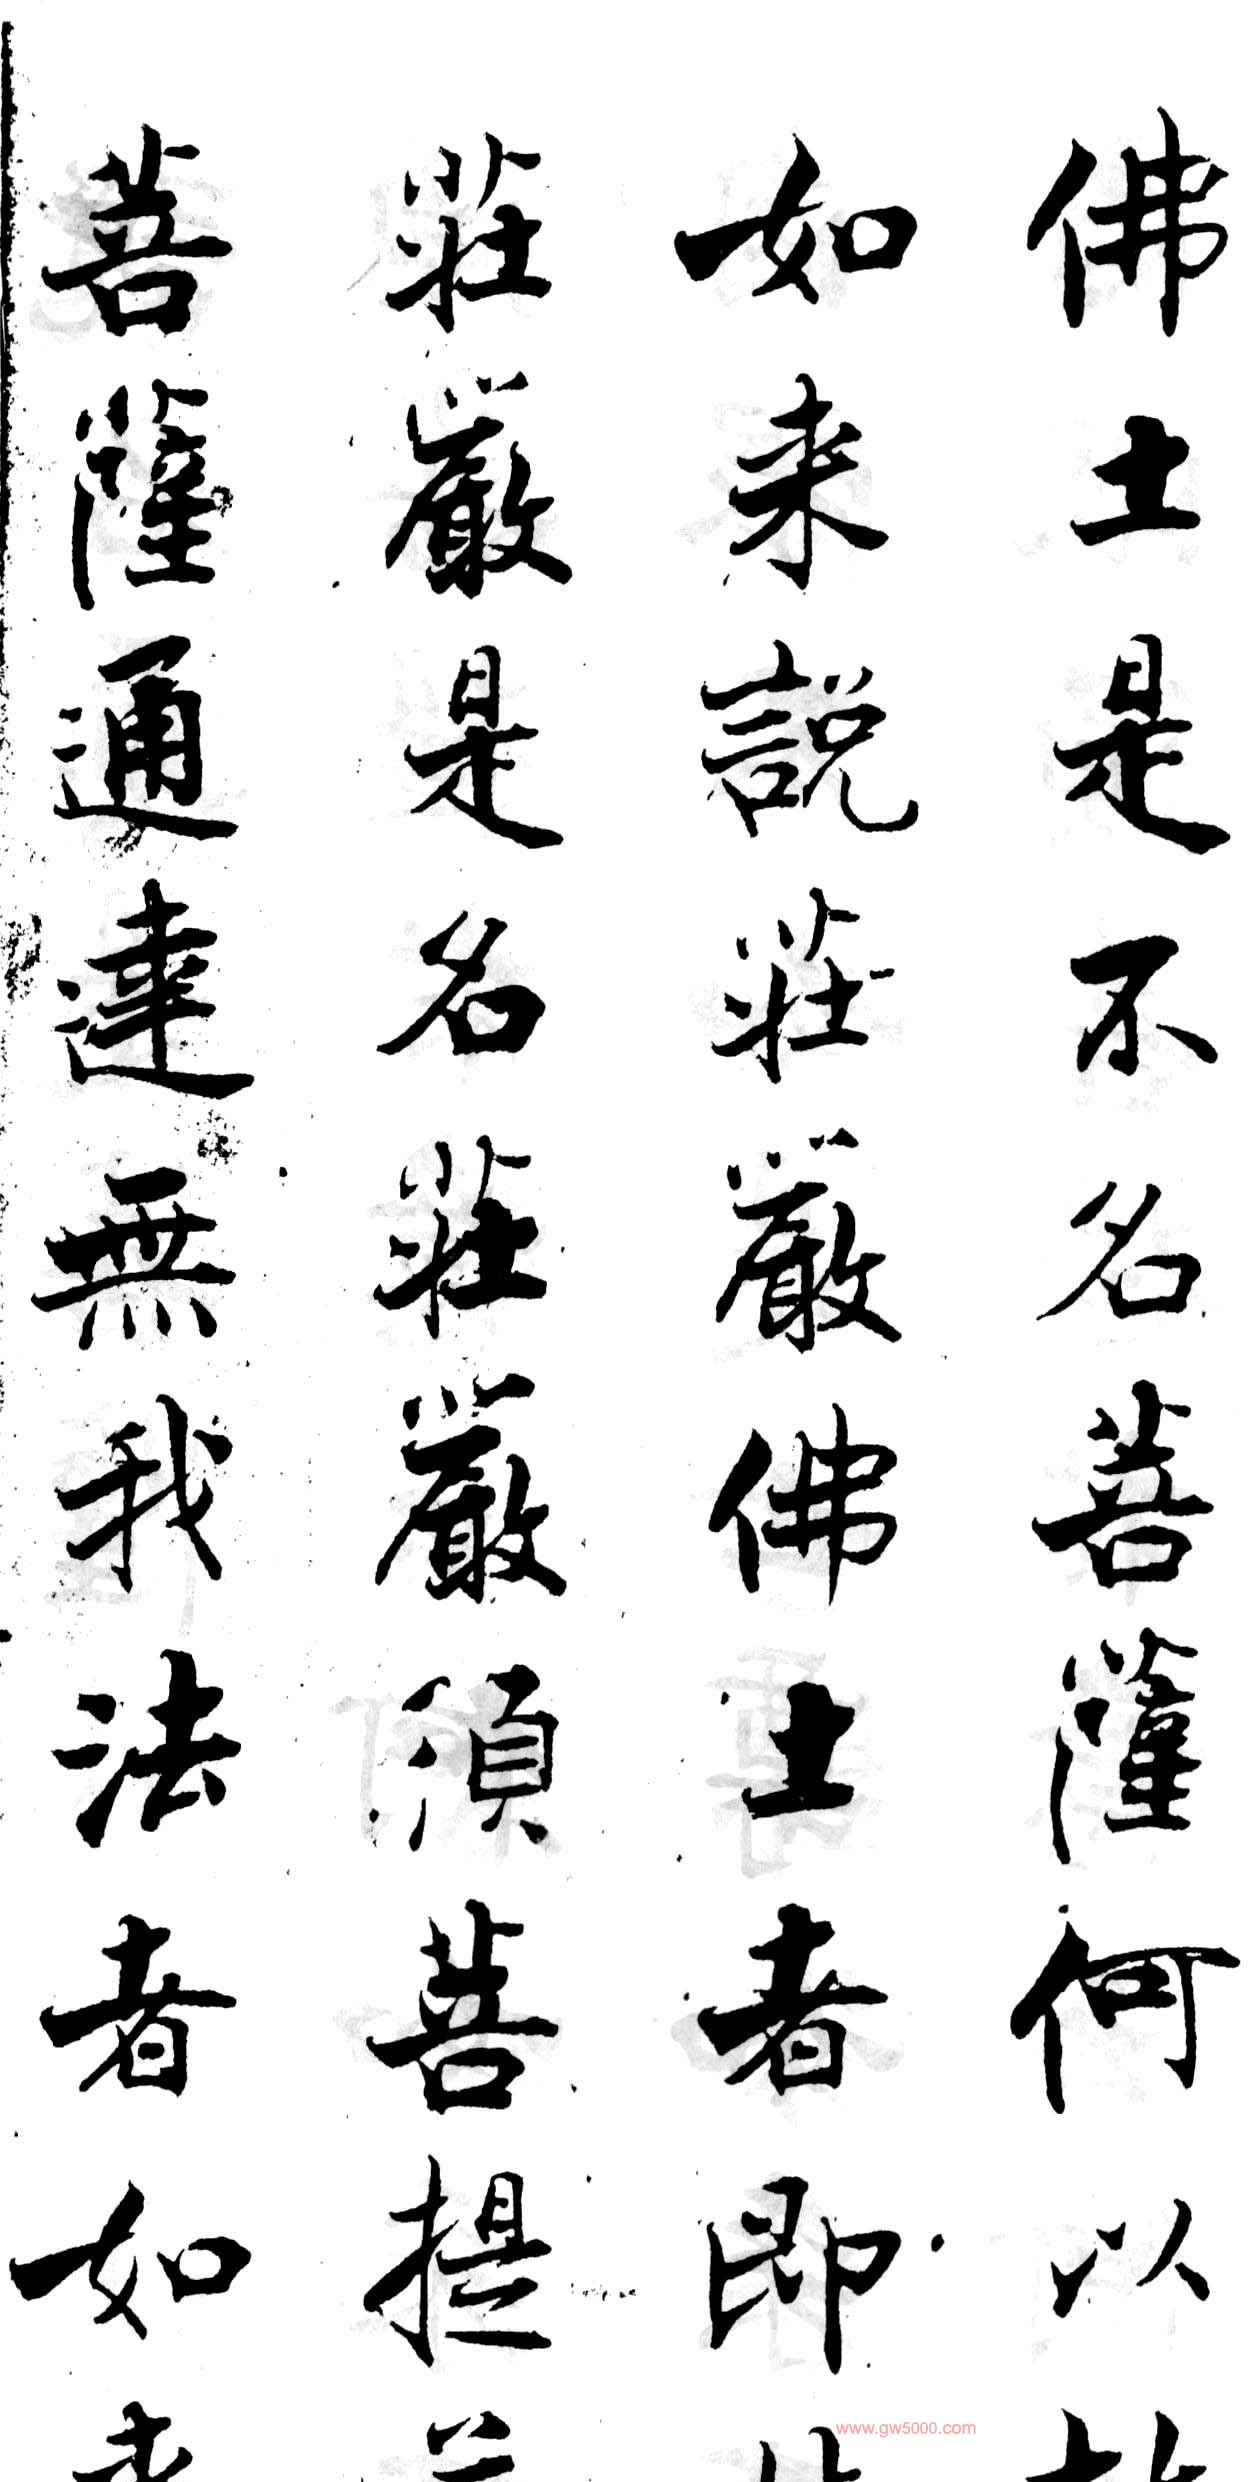 佛土是不名菩薩何以
如来説莊嚴佛土者即
莊嚴是名莊嚴須菩提
菩薩通達無我法者如
www.gw5000.com